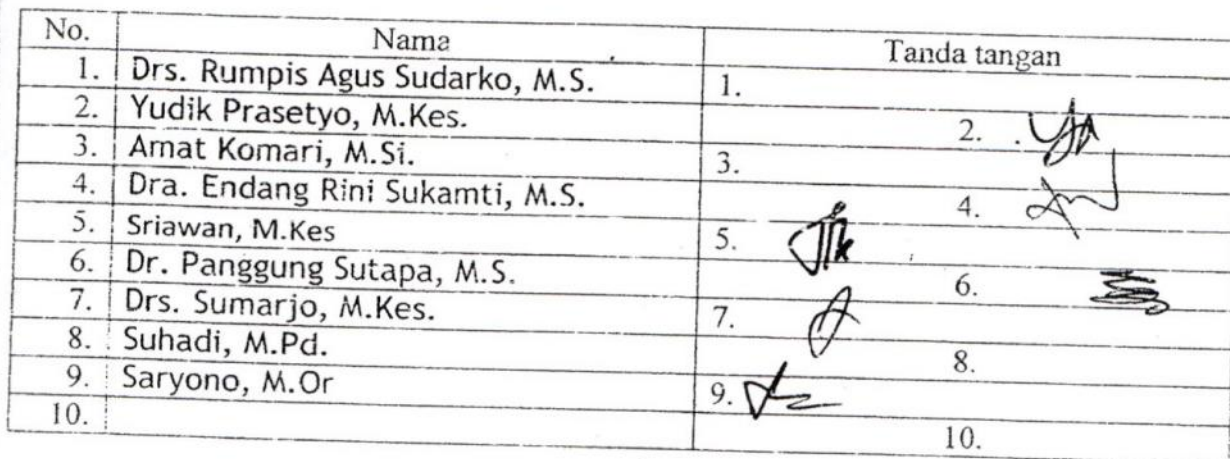 No. Nama Tanda tangan
1. Drs. Rumpis Agus Sudarko, M.S. 1.
2. Yudik Prasetyo, M.Kes. 2.
3. Amat Komari, M.Si. 3.
4. Dra. Endang Rini Sukamti, M.S. 4.
5. Sriawan, M.Kes 5.
6. Dr. Panggung Sutapa, M.S. 6.
7. Drs. Sumarjo, M.Kes. 7.
8. Suhadi, M.Pd. 8.
9. Saryono, M.Or 9.
10. 10.